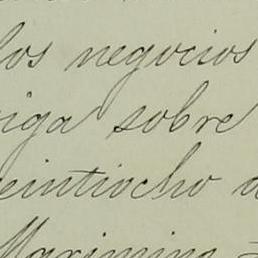 los negocios
iga sobre
eintiocho a
Maximino